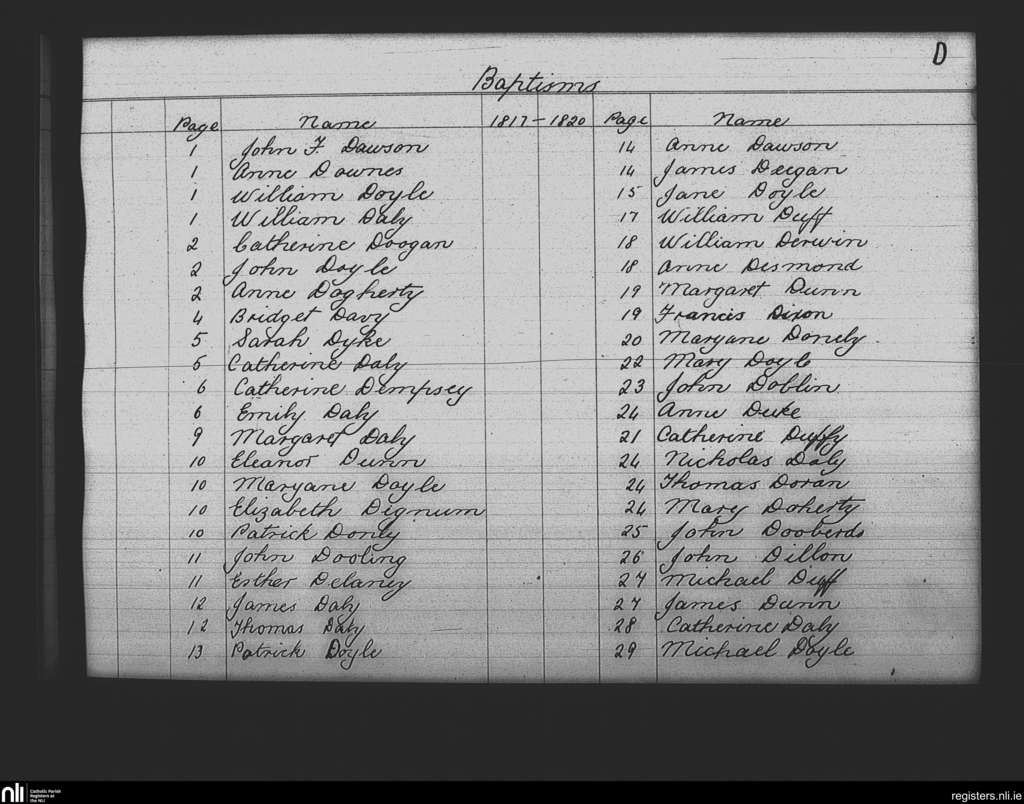 D
Baptisms
Page Name 1817-1820 Page Name
1 John F. Dawson
1 Anne Downes
1 William Doyle
1 William Daly
2 Catherine Doogan
2 John Doyle
2 Anne Dogherty
4 Bridget Davy
5 Sarah Dyke
5 Catherine Daly
6 Catherine Dempsey
6 Emily Daly
9 Margaret Daly
10 Eleanor Dunn
10 Maryane Doyle
10 Elizabeth Dignum
10 Patrick Donly
11 John Dooling
11 Esther Delaney
12 James Daly
12 Thomas Daly
13 Patrick Doyle
14 Anne Dawson
14 James Deegan
15 Jane Doyle
17 William Duff
18 William Derwin
18 Anne Desmond
19 Margaret Dunn
19 Francis Dixon
20 Maryane Donely
22 Mary Doyle
23 John Doblin
24 Anne Duke
21 Catherine Duffy
24 Nicholas Daly
24 Thomas Doran
24 Mary Doherty
25 John Dooberds
26 John Dillon
27 Michael Duff
27 James Dunn
28 Catherine Daly
29 Michael Doyle
nli
Catholic Parish
Registers at
the NLI
registers.nli.ie